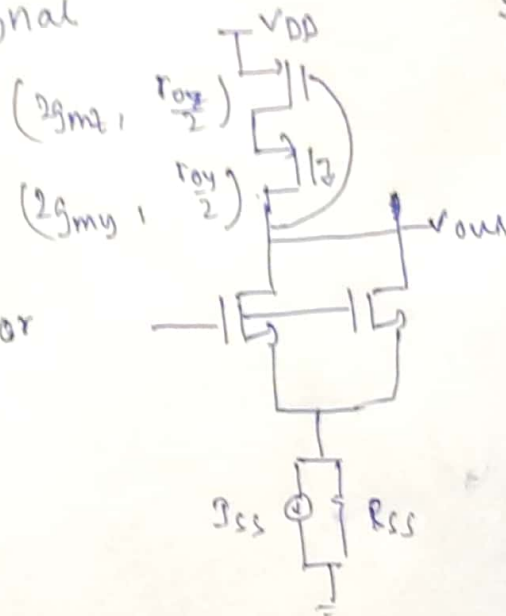 onal
VDD
(2gmz, roz/2)
(2gmy, roy/2)
Vout
or
ISS
RSS